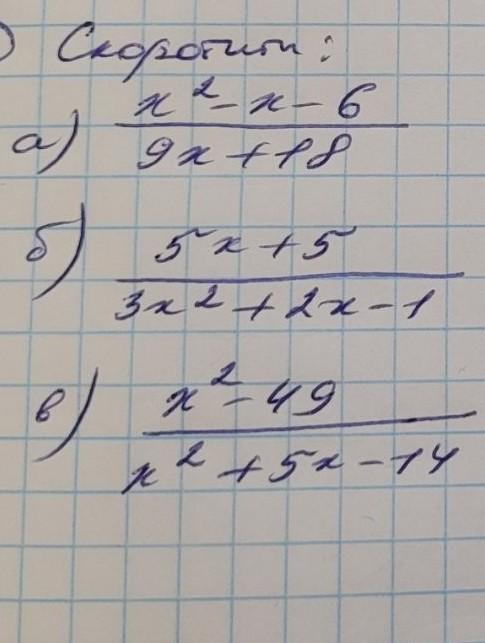 ) Скоротити:
а) x² - x - 6 / 9x + 18
б) 5x + 5 / 3x² + 2x - 1
в) x² - 49 / x² + 5x - 14